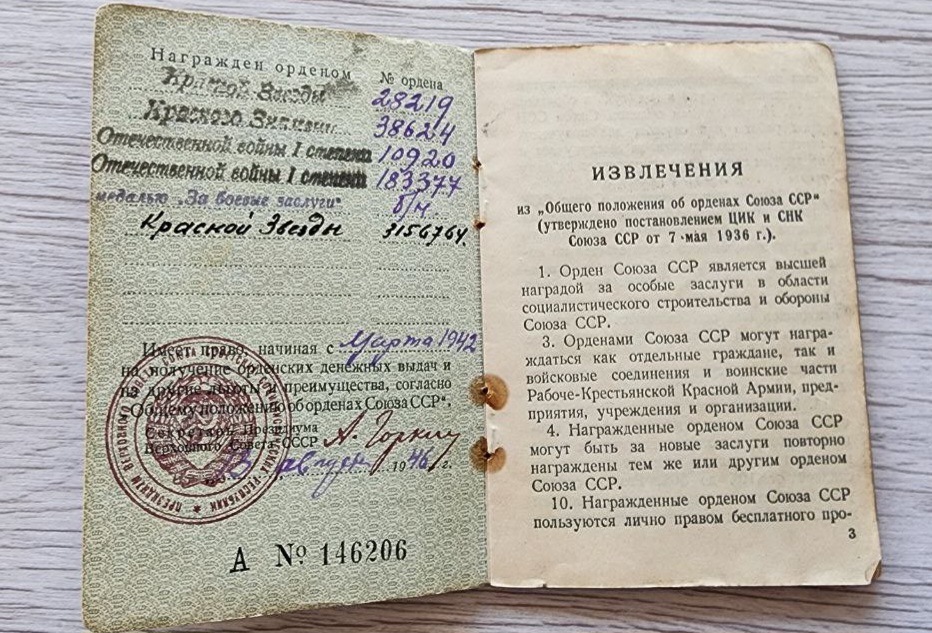 Награжден орденом № ордена
Красной Звезды 28219
Красного Знамени 38624
Отечественной войны I степени 10920
Отечественной войны I степени 183377
медалью „За боевые заслуги“ б/н
Красной Звезды 3156764.
Имеет право, начиная с Марта 1942
на получение орденских денежных выдач и
на другие льготы и преимущества, согласно
„Общему положению об орденах Союза ССР“.
Секретарь Президиума
Верховного Совета СССР А. Горкин
августа 1946 г.
А № 146206
ИЗВЛЕЧЕНИЯ
из „Общего положения об орденах Союза ССР“
(утверждено постановлением ЦИК и СНК
Союза ССР от 7 мая 1936 г.).
1. Орден Союза ССР является высшей
наградой за особые заслуги в области
социалистического строительства и обороны
Союза ССР.
3. Орденами Союза ССР могут награ-
ждаться как отдельные граждане, так и
войсковые соединения и воинские части
Рабоче-Крестьянской Красной Армии, пред-
приятия, учреждения и организации.
4. Награжденные орденом Союза ССР
могут быть за новые заслуги повторно
награждены тем же или другим орденом
Союза ССР.
10. Награжденные орденом Союза ССР
пользуются лично правом бесплатного про-
3